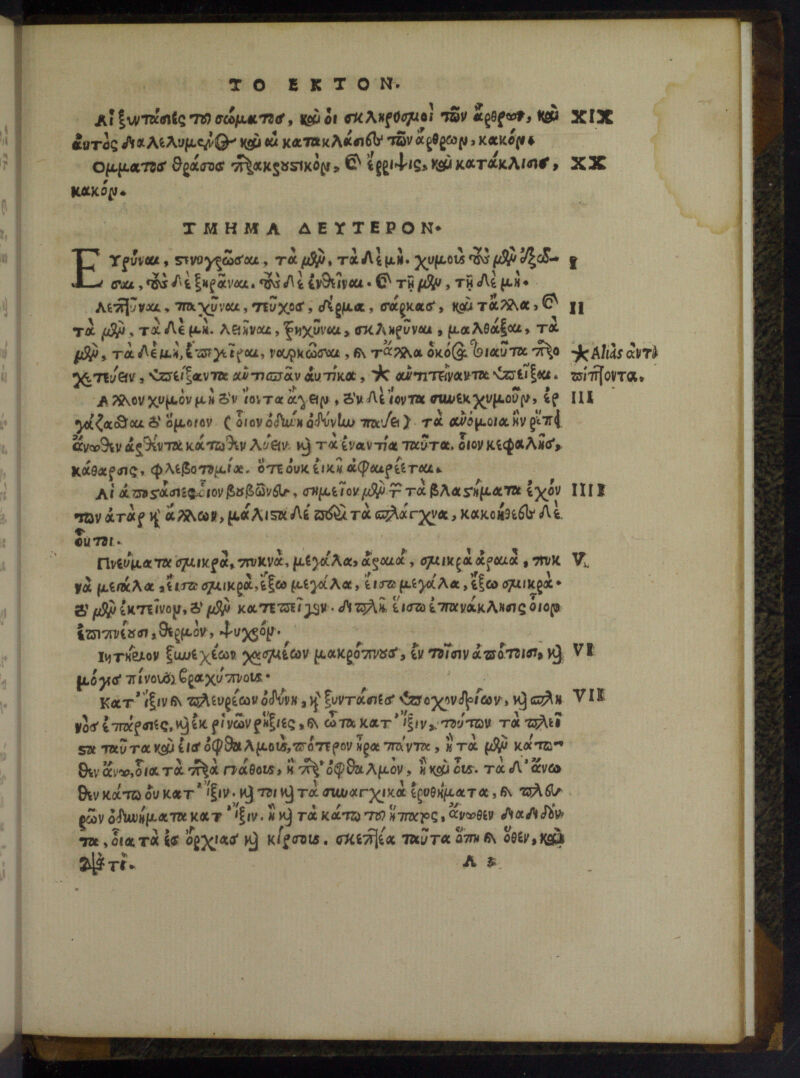 ΤΟ ΕΚΤΟΝ.
Αἱ ξυντάσιες τοῦ σώματος, καὶ οἱ σκληρυσμοὶ τῶν ἄρθρων, καὶ XIX
ἀυτὸς διαλελυμένος καὶ αἱ κατακλάσιες τῶν ἄρθρων, κακόν.
Ομματος θράσος παρακρουστικόν, καὶ ἔρριψις, καὶ κατάκλισις, XX
κακόν.
ΤΜΗΜΑ ΔΕΥΤΕΡΟΝ.
ΕΥρύναι, στνογρῶσαι, τὰ μὲν, τὰ δὲ μή. χυμοὺς τοὺς μὲν ἐξῶ- I
σαι, τοὺς δὲ ξηρᾶναι. τοὺς δὲ ἐνθεῖναι. καὶ τῇ μὲν, τῇ δὲ μή.
Λεπτῦναι, παχῦναι, τεῦχος, δέρμα, σάρκας, καὶ τἄλλα, καὶ II
τὰ μὲν, τὰ δὲ μή. λειῆναι, τρηχῦναι, σκληρῦναι, μαλθάξαι, τὰ
μὲν, τὰ δὲ μή, ἐπεγεῖραι, ναρκῶσαι, καὶ τἄλλα ὁκόσα τοιαῦτα παρο * Aliàs ἀντὶ
χετεύειν, ὑπείξαντα ἀντισπᾶν ἀυτίκα, * ἀντιτείναντα ὑπεῖξαι. σπῶντα.
Αλλον χυμὸν μὴ τὸν ἰόντα ἄγειν, τὸν δὲ ἰόντα συνεκχυμοῦν, ἐρ III
γάζασθαι τὸ ὅμοιον (οἷον ὀδύνη ὀδύνην παύει) τὰ ἀνόμοια ἢν ῥέπῃ
ἄνωθεν ἀρθέντα κάτωθεν λύειν. καὶ τὰ ἐναντία ταῦτα. οἷον κεφαλῆς,
κάθαρσις, φλεβοτομία. ὅτε ὀυκ ἐικῆ ἀφαιρέεται.
Αἱ ἀποστάσιες οἷον βουβῶνες, σημεῖον μὲν τὰ βλαστήματα ἐχόν IIII
των ἀτὰρ καὶ ἄλλων, μάλιστα δὲ περὶ τὰ σπλάγχνα, κακοήθεες δὲ
οὗτοι.
Πνεύματα σμικρὰ, πυκνὰ, μεγάλα, ἀραιὰ, σμικρὰ ἀραιὰ, πυκ V.
νὰ μεγάλα, εἴσω σμικρὰ, ἔξω μεγάλα, εἴσω μεγάλα, ἔξω σμικρά.
τὸ μὲν ἐκτεῖνον, τὸ μὲν κατεπεῖγον. διπλῆ εἴσω ἐπανάκλησις οἷον
ἐπιπνέουσι, θερμὸν, ψυχρόν.
Ιητήριον ξυνεχέων χασμέων μακρόπνους, ἐν τοῖσιν ἀπότοισι, καὶ VI
μόγις πίνουσι βραχύπνους.
Κατ' ἴξιν καὶ πλευρέων ὀδύνη, καὶ ξυντάσιες ὑποχονδρίων, καὶ σπλη VII
νὸς ἐπάρσιες, καὶ ἐκ ῥινῶν ῥήξιες, καὶ ὦτα κατ' ἴξιν, τούτων τὰ πλεῖ
στα ταῦτα καὶ εἰς ὀφθαλμοὺς, πότερον ἦρα πάντα, ἢ τὰ μὲν κάτω-
θεν ἄνω, οἷα τὰ παρὰ γνάθους, ἢ παρ' ὀφθαλμὸν, ἢ καὶ οὖς. τὰ δ' ἄνω
θεν κάτω ὀυ κατ' ἴξιν. καί τοι καὶ τὰ συναγχικὰ ἐρυθήματα, καὶ πλευ
ρῶν ὀδυνήματα κατ' ἴξιν. ἢ καὶ τὰ κάτω τοῦ ἥπατος, ἄνωθεν διαδιδόν
τα, οἷα τὰ ἐς ὄρχιας καὶ κίρσους. σκεπτέα ταῦτα ὅπη καὶ ὅθεν, καὶ
διὰ τί.